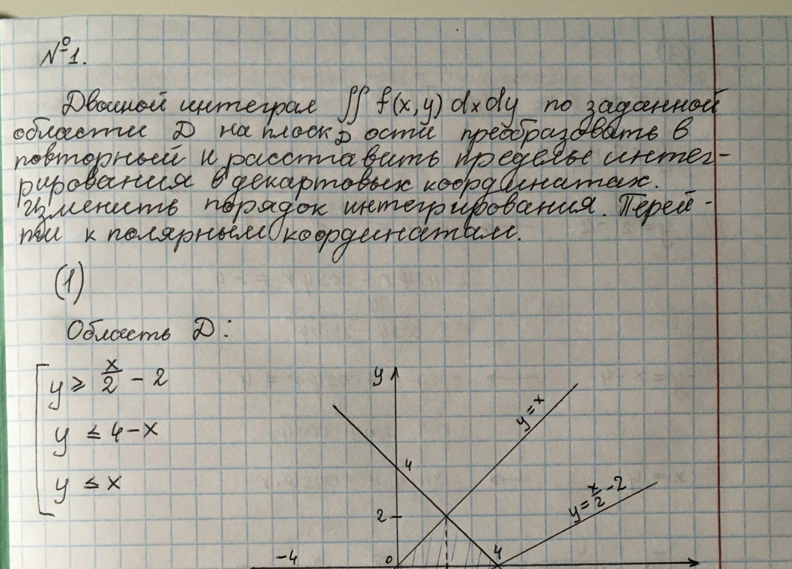 №1.
Двойной интеграл ∬ f(x,y) dxdy по заданной
D
области D на плоскости преобразовать в
повторный и расставить пределы интег-
рирования в декартовых координатах.
Изменить порядок интегрирования. Перей-
ти к полярным координатам.
(1)
Область D:
y ≥ x/2 - 2
y ≤ 4-x
y ≤ x
y
y=x
4
y=x/2-2
2
-4
0
4